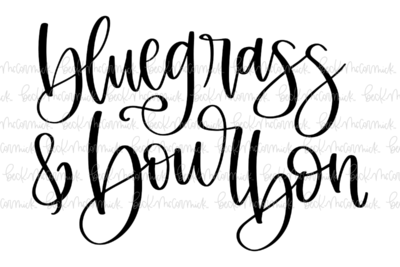 bluegrass
& bourbon